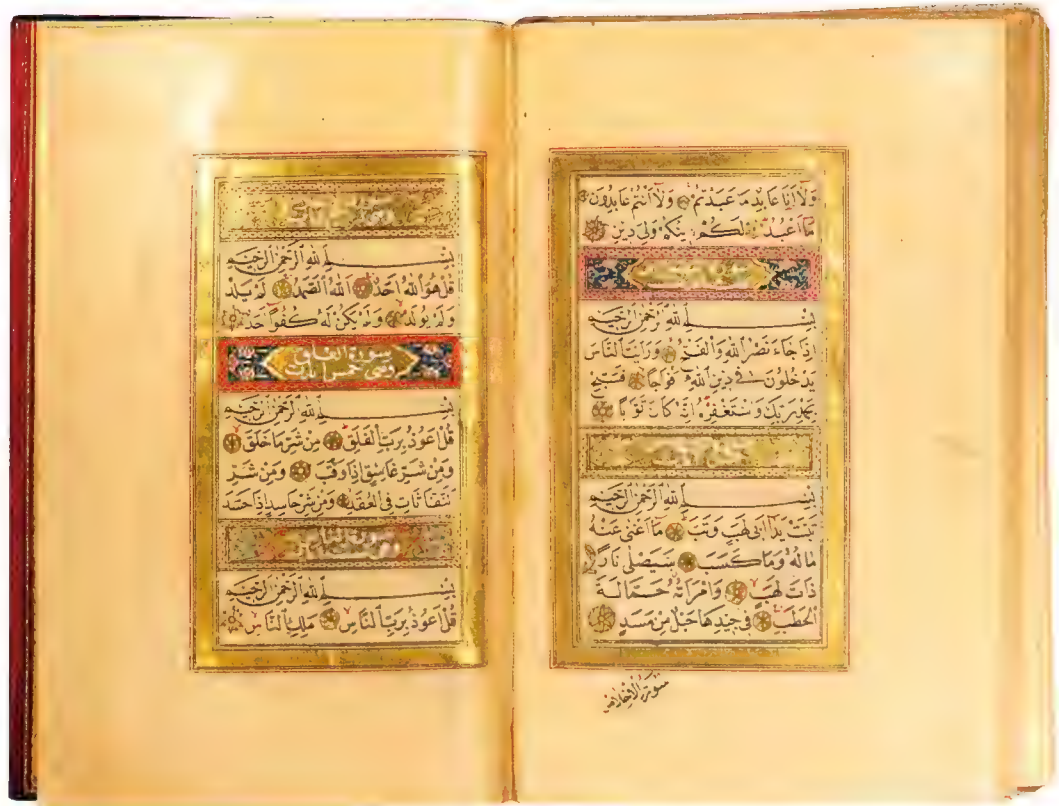 وَلَا أَنَا عَابِدٌ مَا عَبَدْتُمْ وَلَا أَنْتُمْ عَابِدُونَ
مَا أَعْبُدُ لَكُمْ دِينُكُمْ وَلِيَ دِينِ
بِسْمِ اللّٰهِ الرَّحْمٰنِ الرَّحِيمِ
إِذَا جَاءَ نَصْرُ اللّٰهِ وَالْفَتْحُ وَرَأَيْتَ النَّاسَ
يَدْخُلُونَ فِي دِينِ اللّٰهِ أَفْوَاجًا فَسَبِّحْ
بِحَمْدِ رَبِّكَ وَاسْتَغْفِرْهُ إِنَّهُ كَانَ تَوَّابًا
بِسْمِ اللّٰهِ الرَّحْمٰنِ الرَّحِيمِ
تَبَّتْ يَدَا أَبِي لَهَبٍ وَتَبَّ مَا أَغْنَى عَنْهُ
مَالُهُ وَمَا كَسَبَ سَيَصْلَى نَارًا
ذَاتَ لَهَبٍ وَامْرَأَتُهُ حَمَّالَةَ
الْحَطَبِ فِي جِيدِهَا حَبْلٌ مِنْ مَسَدٍ
سورة الاخلاص
بِسْمِ اللّٰهِ الرَّحْمٰنِ الرَّحِيمِ
قُلْ هُوَ اللّٰهُ أَحَدٌ اللّٰهُ الصَّمَدُ لَمْ يَلِدْ
وَلَمْ يُولَدْ وَلَمْ يَكُنْ لَهُ كُفُوًا أَحَدٌ
سورة الفلق
وهي خمس ايات
بِسْمِ اللّٰهِ الرَّحْمٰنِ الرَّحِيمِ
قُلْ أَعُوذُ بِرَبِّ الْفَلَقِ مِنْ شَرِّ مَا خَلَقَ
وَمِنْ شَرِّ غَاسِقٍ إِذَا وَقَبَ وَمِنْ شَرِّ
النَّفَّاثَاتِ فِي الْعُقَدِ وَمِنْ شَرِّ حَاسِدٍ إِذَا حَسَدَ
سورة الناس
بِسْمِ اللّٰهِ الرَّحْمٰنِ الرَّحِيمِ
قُلْ أَعُوذُ بِرَبِّ النَّاسِ مَلِكِ النَّاسِ